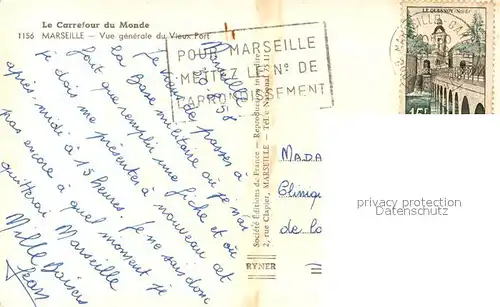 Le Carrefour du Monde
1156 MARSEILLE — Vue générale du Vieux Port
POUR MARSEILLE
METTEZ LE Nº DE
L'ARRONDISSEMENT
LE QUESNOY
15F
Marseille
Je viens de passer à
la Base militaire où je n'ai
fait que remplir une fiche et où
je dois me présenter à nouveau cet
après-midi à 15 heures. Je ne sais donc
pas encore à quel moment je
quitterai Marseille
Mille Baisers
Jean
Société Éditions de France — Reproduction interdite
2, rue Clapier, MARSEILLE - Tél.
RYNER
MADA
Clinique
de la
privacy protection
Datenschutz